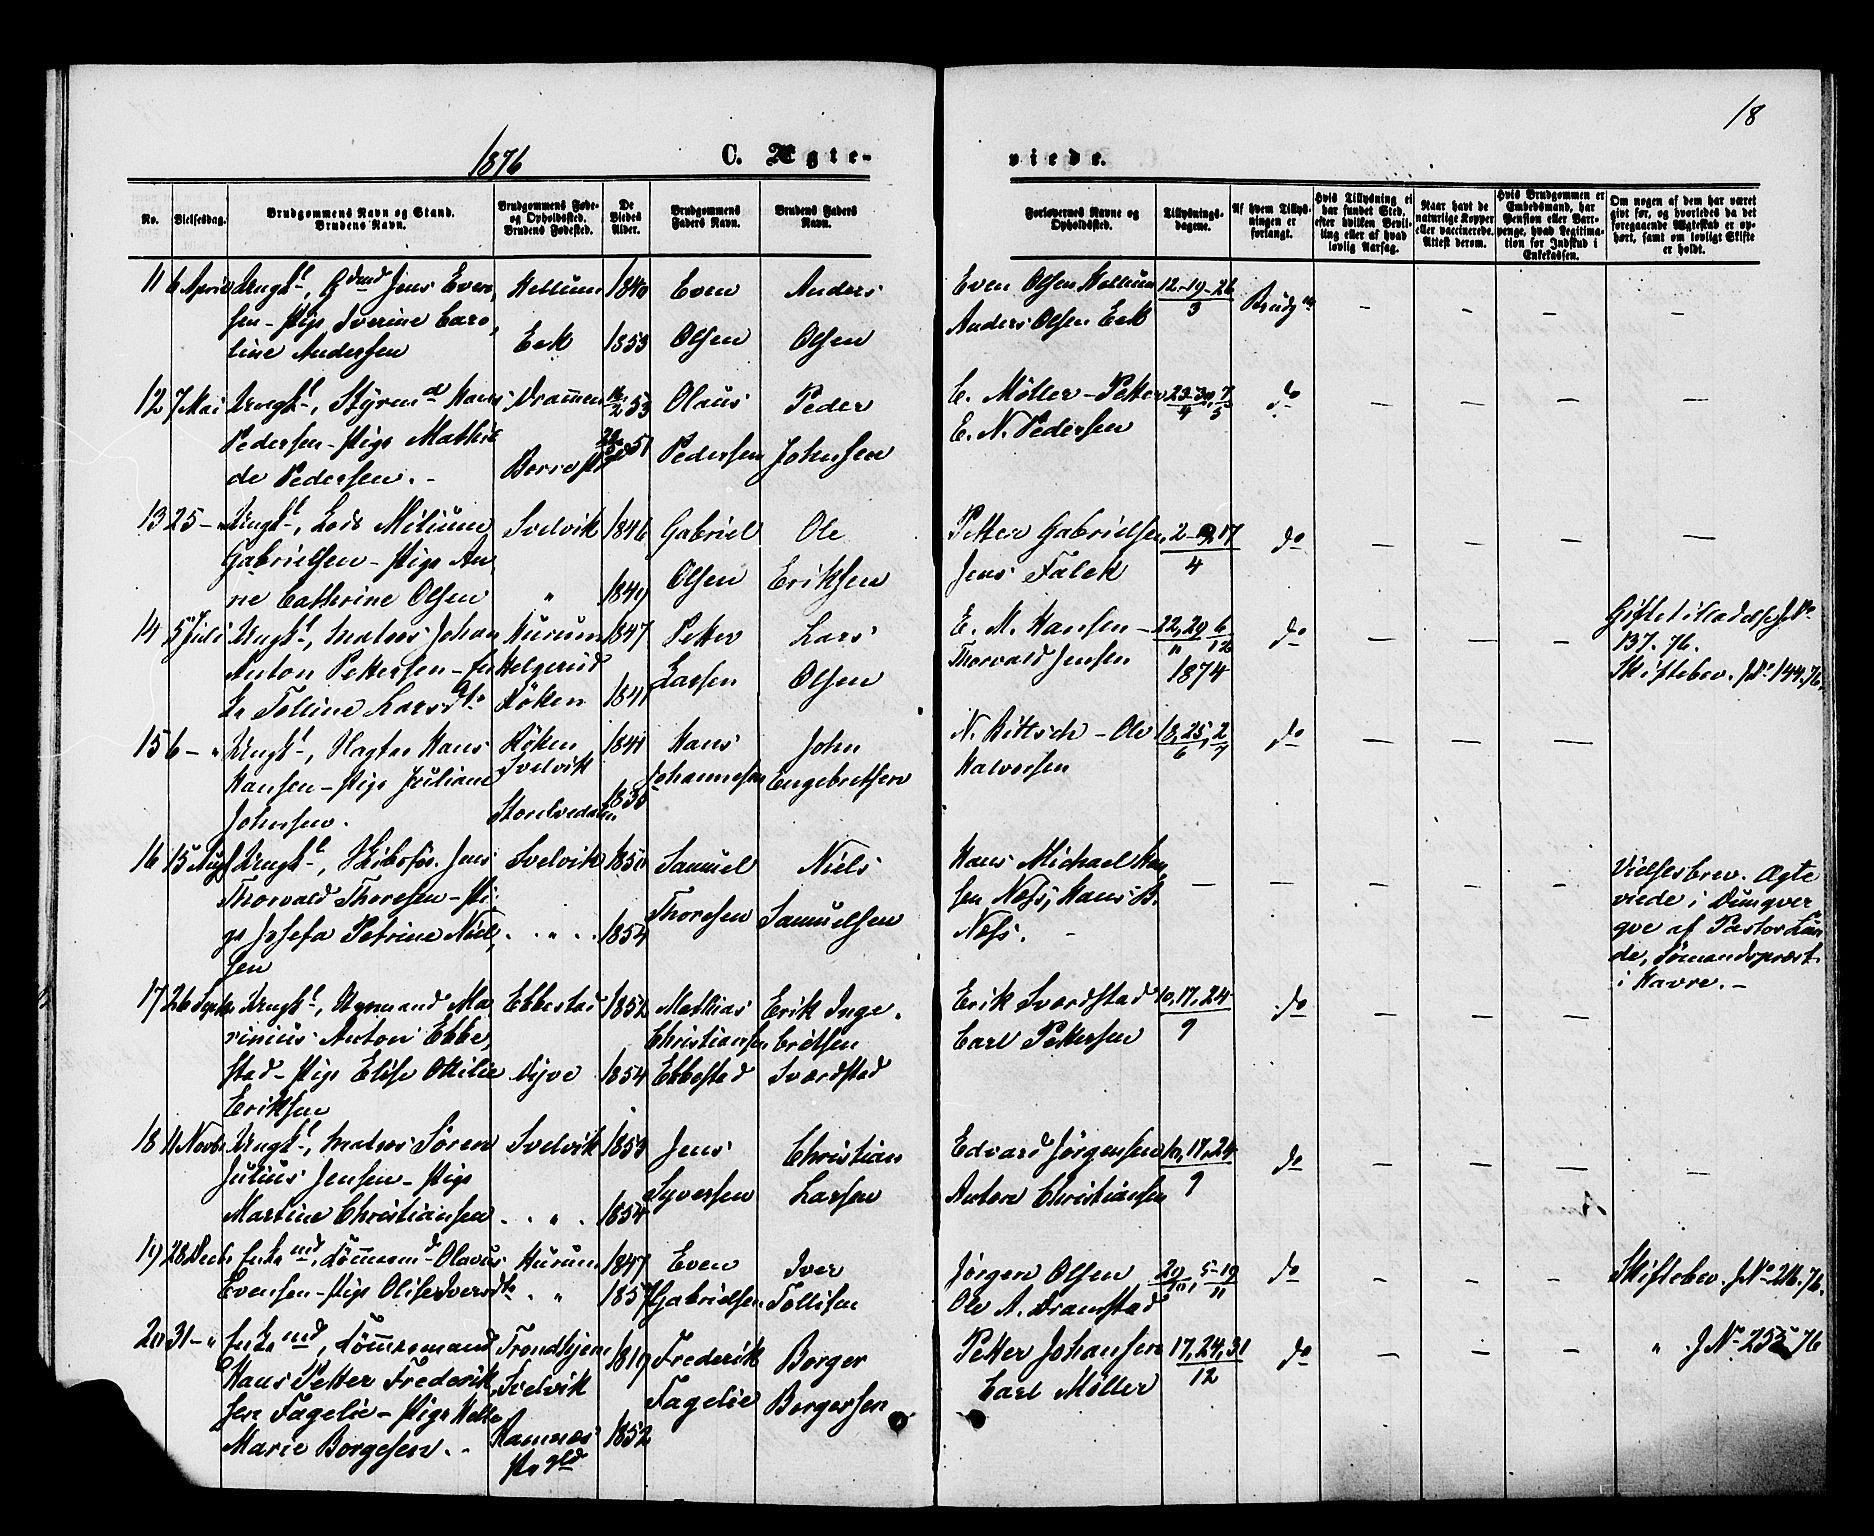 18
1876
C. Ægte-
viede.
No.
Vielsesdag.
Brudgommens Navn og Stand.
Brudens Navn.
Brudgommens Føde-
og Opholdssted.
Brudens Fødested.
De
Viedes
Alder.
Brudgommens
Faders Navn.
Brudens Faders
Navn.
Forlovernes Navne og
Opholdssted.
Tillysnings-
dagene.
Af hvem Tillys-
ningen er
forlangt.
Hvis Tillysning ei
har fundet Sted,
efter hvilken Bevil-
ling eller af hvad
lovlig Aarsag.
Naar havt de
naturlige Kopper
eller vaccinerede.
Attest derom.
Hvis Brudgommen er
Embedsmand, har
Pension eller Vart-
penge, hvad Legitima-
tion for Indskud i
Enkekassen.
Om nogen af dem har været
gift før, og hvorledes da det
foregaaende Ægteskab er op-
hørt, samt om lovligt Skifte
er holdt.
11 6 April Ungk., Jens Even-
sen - Pige Iverine Caro-
line Andersen
Hellum
Eek
1840
1853
Even
Olsen
Anders
Olsen
Even Olsen Hellum
Anders Olsen Eek
12-19-26
3
Brudg.
12 7 Mai Ungk., Styrmd Hans
Pedersen - Pige Mathil-
de Pedersen.
Drammen
Borre
53
51
Olaus
Pedersen
Peder
Johnsen
C. Møller - Petter
E. N. Pedersen
23-30 7
4 5
do
13 25 - Ungk., Lods Milium
Gabrielsen - Pige An-
ne Cathrine Olsen
Svelvik
"
1846
1849
Gabriel
Olsen
Ole
Eriksen
Petter Gabrielsen
Jens Falck
2-9,17
4
do
14 5 Juli Ungk., Matros Johan
Anton Pettersen - En-
ke Tolline Larsdtr
Hurum
Helgerud
Röken
1847
1841
Petter
Larsen
Lars
Olsen
E. M. Hansen -
Thorvald Jensen
22,29 6
11 12
1874
do
137. 76.
Skiftebev. JNo 144.76.
15 6 - " Ungk., Hans
Hansen - Pige Juliane
Johnsen.
Röken
Svelvik
1841
1830
Hans
Johannesen
John
Engebretsen
N. Kittsch - Ole
Halvorsen
18,25, 2
6 7
do
16 15 Aug Ungk., Skibsfør. Jens
Thorvald Thoresen - Pi-
ge Josefa Petrine Niel-
sen
Svelvik
"
1850
1854
Samuel
Thoresen
Niels
Samuelsen
Hans Michael Han-
sen Næss, Hans B.
Næss.
Vielsesbrev. Ægte
viede i Dunqver-
qve af Pastor Lun-
de, Sømandsprest
i Havre. -
17 26 Septbr Ungk., Styrmand Ma-
rinius Anton Ebbe-
stad - Pige Elise Otilie
Eriksen
Ebbestad
1852
1854
Mathias
Christiansen
Ebbestad
Erik Inge-
bretsen
Sværdstad
Erik Sværdstad
Carl Pettersen
10,17,24
9
do
18 11 Novbr Ungk., Matros Sören
Julius Jensen - Pige
Martine Christiansen
Svelvik
"
1853
1854
Jens
Syversen
Christian
Larsen
Edvard Jörgensen
Anton Christiansen
10,17,24
9
do
19 28 Decbr Enkemd, Tömmermd Olavus
Evensen - Pige Olise Iversdtr
Hurum
"
1847
1857
Even
Gabrielsen
Iver
Tollisen
Jörgen Olsen
Ole A. Dramstad
29 5-19
10 11
do
Skiftebev. JNo 216.76.
20 31 - " Enkemd, Tömmermand
Hans Petter Frederik-
sen Fagelie - Pige Helle
Marie Borgesen.
Trondhjem
Svelvik
Ramnes
Prgld
1819
1852
Frederik
Fagelie
Borger
Borgersen
Petter Johansen
Carl Möller
17,24,31
12
do
" JNo 255 76